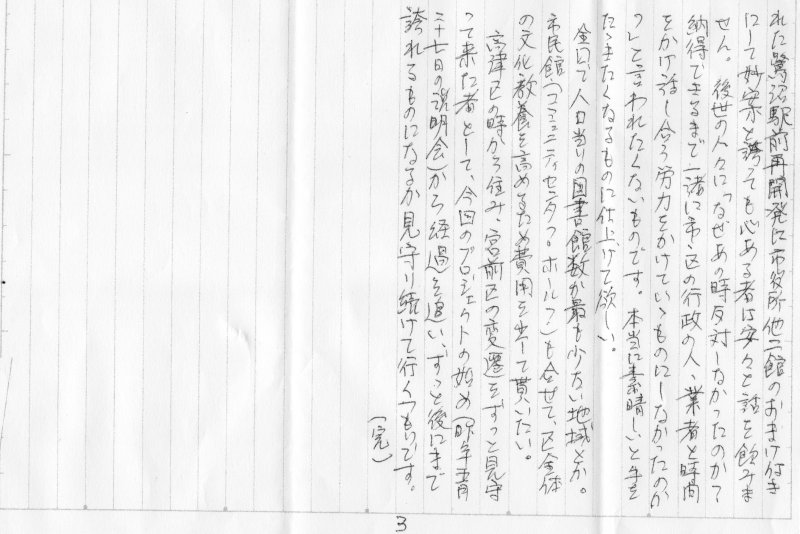 れた鷺沼駅前再開発に市役所他二館のおまけ付き
にして妙案と誇っても心ある者は安々と話を飲みま
せん。後世の人々に「なぜあの時反対しなかったのか？
納得できるまで一諸に市、区の行政の人、業者と時間
をかけ話し合う労力をかけていゝものにしなかったのか
？」と言われたくないものです。本当に素晴しいと手を
たゝきたくなるものに仕上げて欲しい。
全国で人口当りの図書館数が最も少ない地域とか。
市民館（コミュニティセンター。ホール？）も合せて、区全体
の文化教養を高めるため費用を出して貰いたい。
高津区の時から住み、宮前区の変遷をずっと見守
って来た者として、今回のプロジェクトの始め（昨年
二十七日の説明会）から経過を追い、ずっと後にまで
誇れるものになるか見守り続けて行くつもりです。
（完）
3